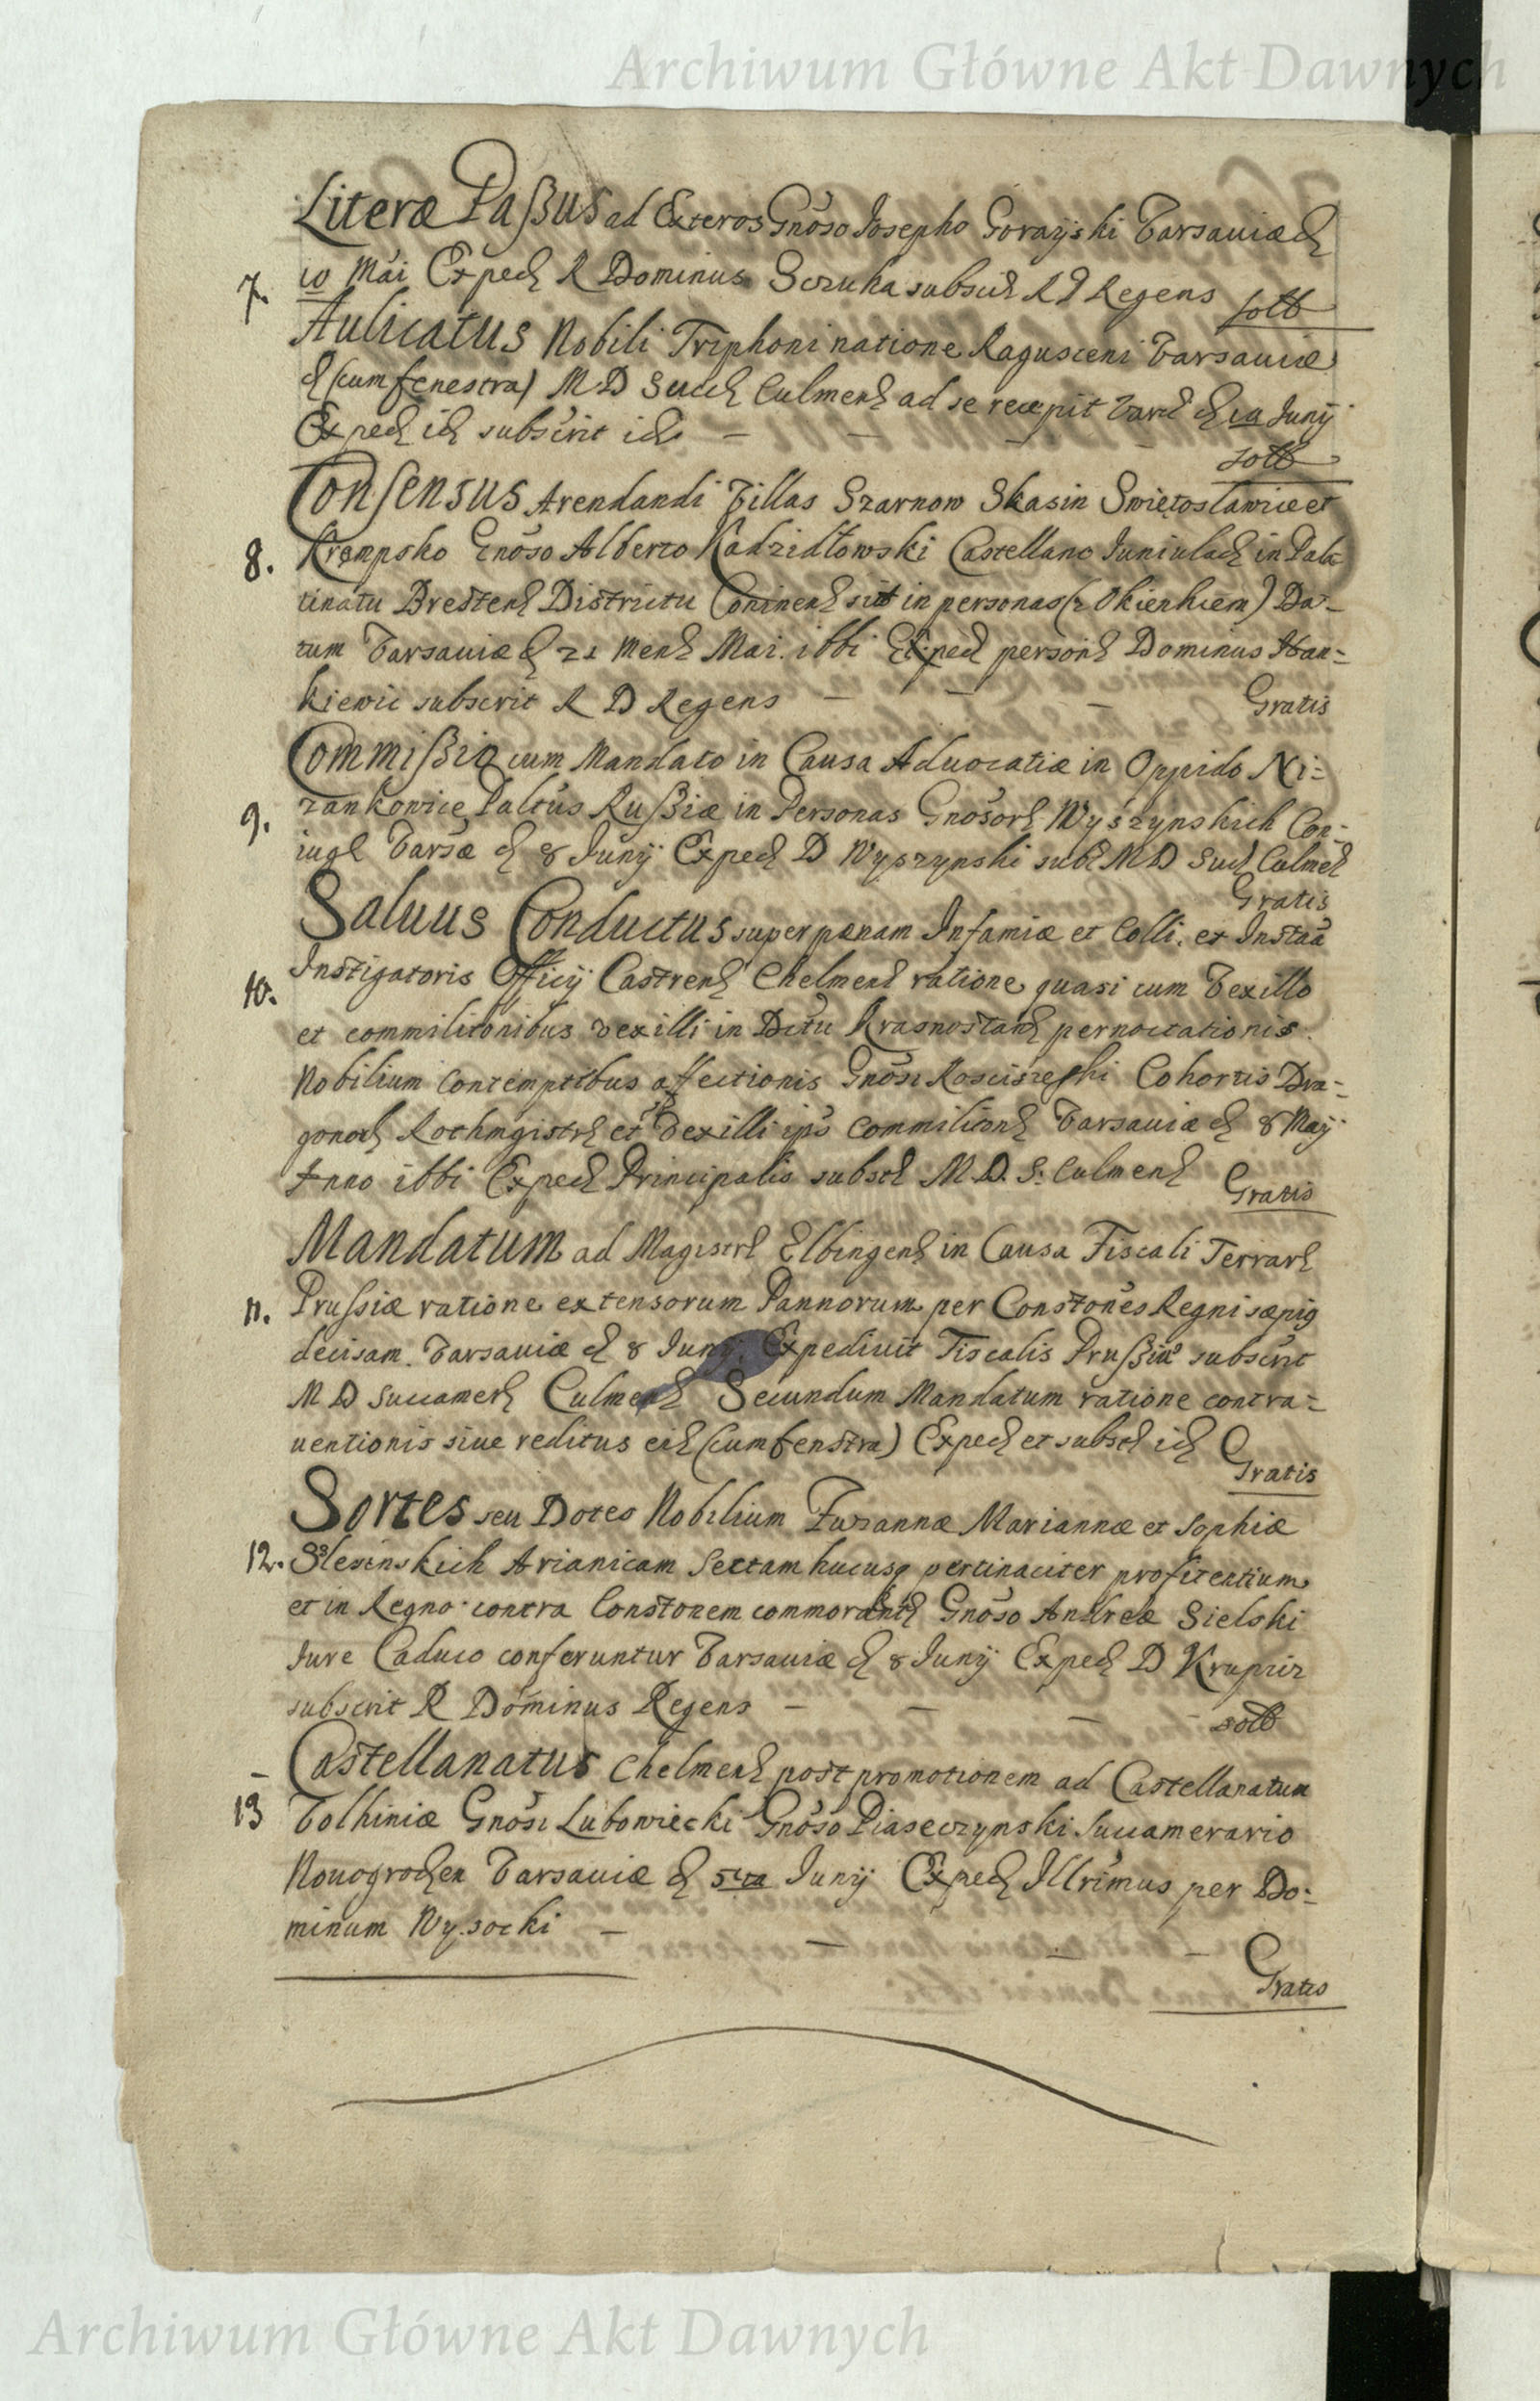 Archiwum Główne Akt Dawnych
Literæ Paßus ad Exteros Gnoso Josepho Gorayski Varsaviæ d
7. 10 Mai Exped R Dominus Sczuka subscr R D Regens
solt
Aulicatus Nobili Triphoni natione Raguseni Varsaviæ
d (cum fenestra) M D Succ Culmen ad se recepit Vars d 10 Junij
Exped id subscrit id
solt
Consensus Arendandi Villas Szarnow Skasin Swiętosławice et
8. Krempsko Gnoso Alberto Kadzidłowski Castellano Juniulad in Pala
tinatu Bresten Districtu Coninen sit in personas (z Okienkiem) Da-
tum Varsaviæ d 21 Mens Mai. 1661 Exped person Dominus Han=
kiewic subscrit R D Regens
Gratis
Commißio cum Mandato in Causa Advocatiæ in Oppido Ni=
9. zankowice Paltus Rußiæ in Personas Gnosor Wyszynskich Con-
iug Varsæ d 8 Junij Exped D Wyszynski subs M D Succ Culmen
Gratis
Salvus Conductus super pænam Infamiæ et Colli. et Instaa
10. Instigatoris Officij Castren Chelmen ratione quasi cum Vexillo
et commilitonibus vexilli in Dctu Krasnostan pernoctationis
Nobilium Contemptibus affectionis Gnosi Kosciszeski Cohortis Dra-
gonor Rothmgistri et Vexilli ips Commiliton Varsaviæ d 8 Maij
Anno 1661 Exped Principalis subscr M. D. S: Culmen
Gratis
Mandatum ad Magistr Elbingen in Causa Fiscali Terrar
11. Prußiæ ratione extensorum Pannorum per Constones Regni sæpiq
decisam. Varsaviæ d 8 Junij. Expedivit Fiscalis Prußiæ subscrit
M D Succamer Culmen Secundum Mandatum ratione contra=
uentionis siue reditus eid (cum fenstra) Exped et subscr id
Gratis
Sortes seu Dotes Nobilium Zuzannæ Mariannæ et Sophiæ
12. Szlesinskich Arianicam Sectam hucusq pertinaciter profitentium
et in Regno contra Constonem commorant Gnoso Andreæ Sielski
Jure Caduco conferuntur Varsaviæ d 8 Junij Exped D Krupir
subscrit R Dominus Regens
solt
Castellanatus Chelmen post promotionem ad Castellanatum
13 Volhiniæ Gnosi Lubowiecki Gnoso Piaseczynski Succamerario
Nouogroden Varsaviæ d 5ta Junij Exped Illrimus per Do=
minum Wysocki
Gratis
Archiwum Główne Akt Dawnych